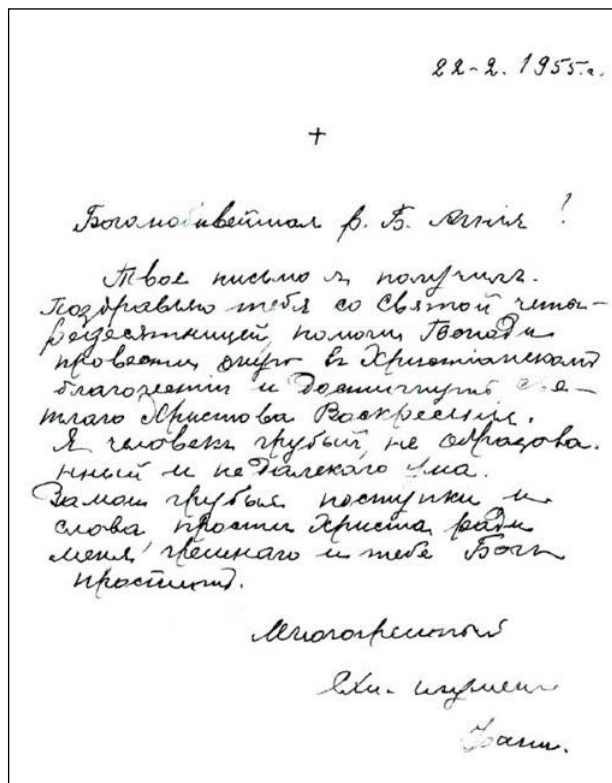 22-2. 1955г.
+
Боголюбивейшая р. Б. Агния!
Твое письмо я получилъ.
Поздравляю тебя со Святой четы-
редесятницей, помоги Господи
провести оную въ Христіанскомъ
благочестии и достигнути све-
тлаго Христова Воскресенія.
Я человекъ грубый, не образова-
нный и недалекаго ума.
За мои грубыя поступки и
слова прости Христа ради
меня грешнаго и тебе Богъ
проститъ.
Многогрешный
Схи-игумен
Іоанн.